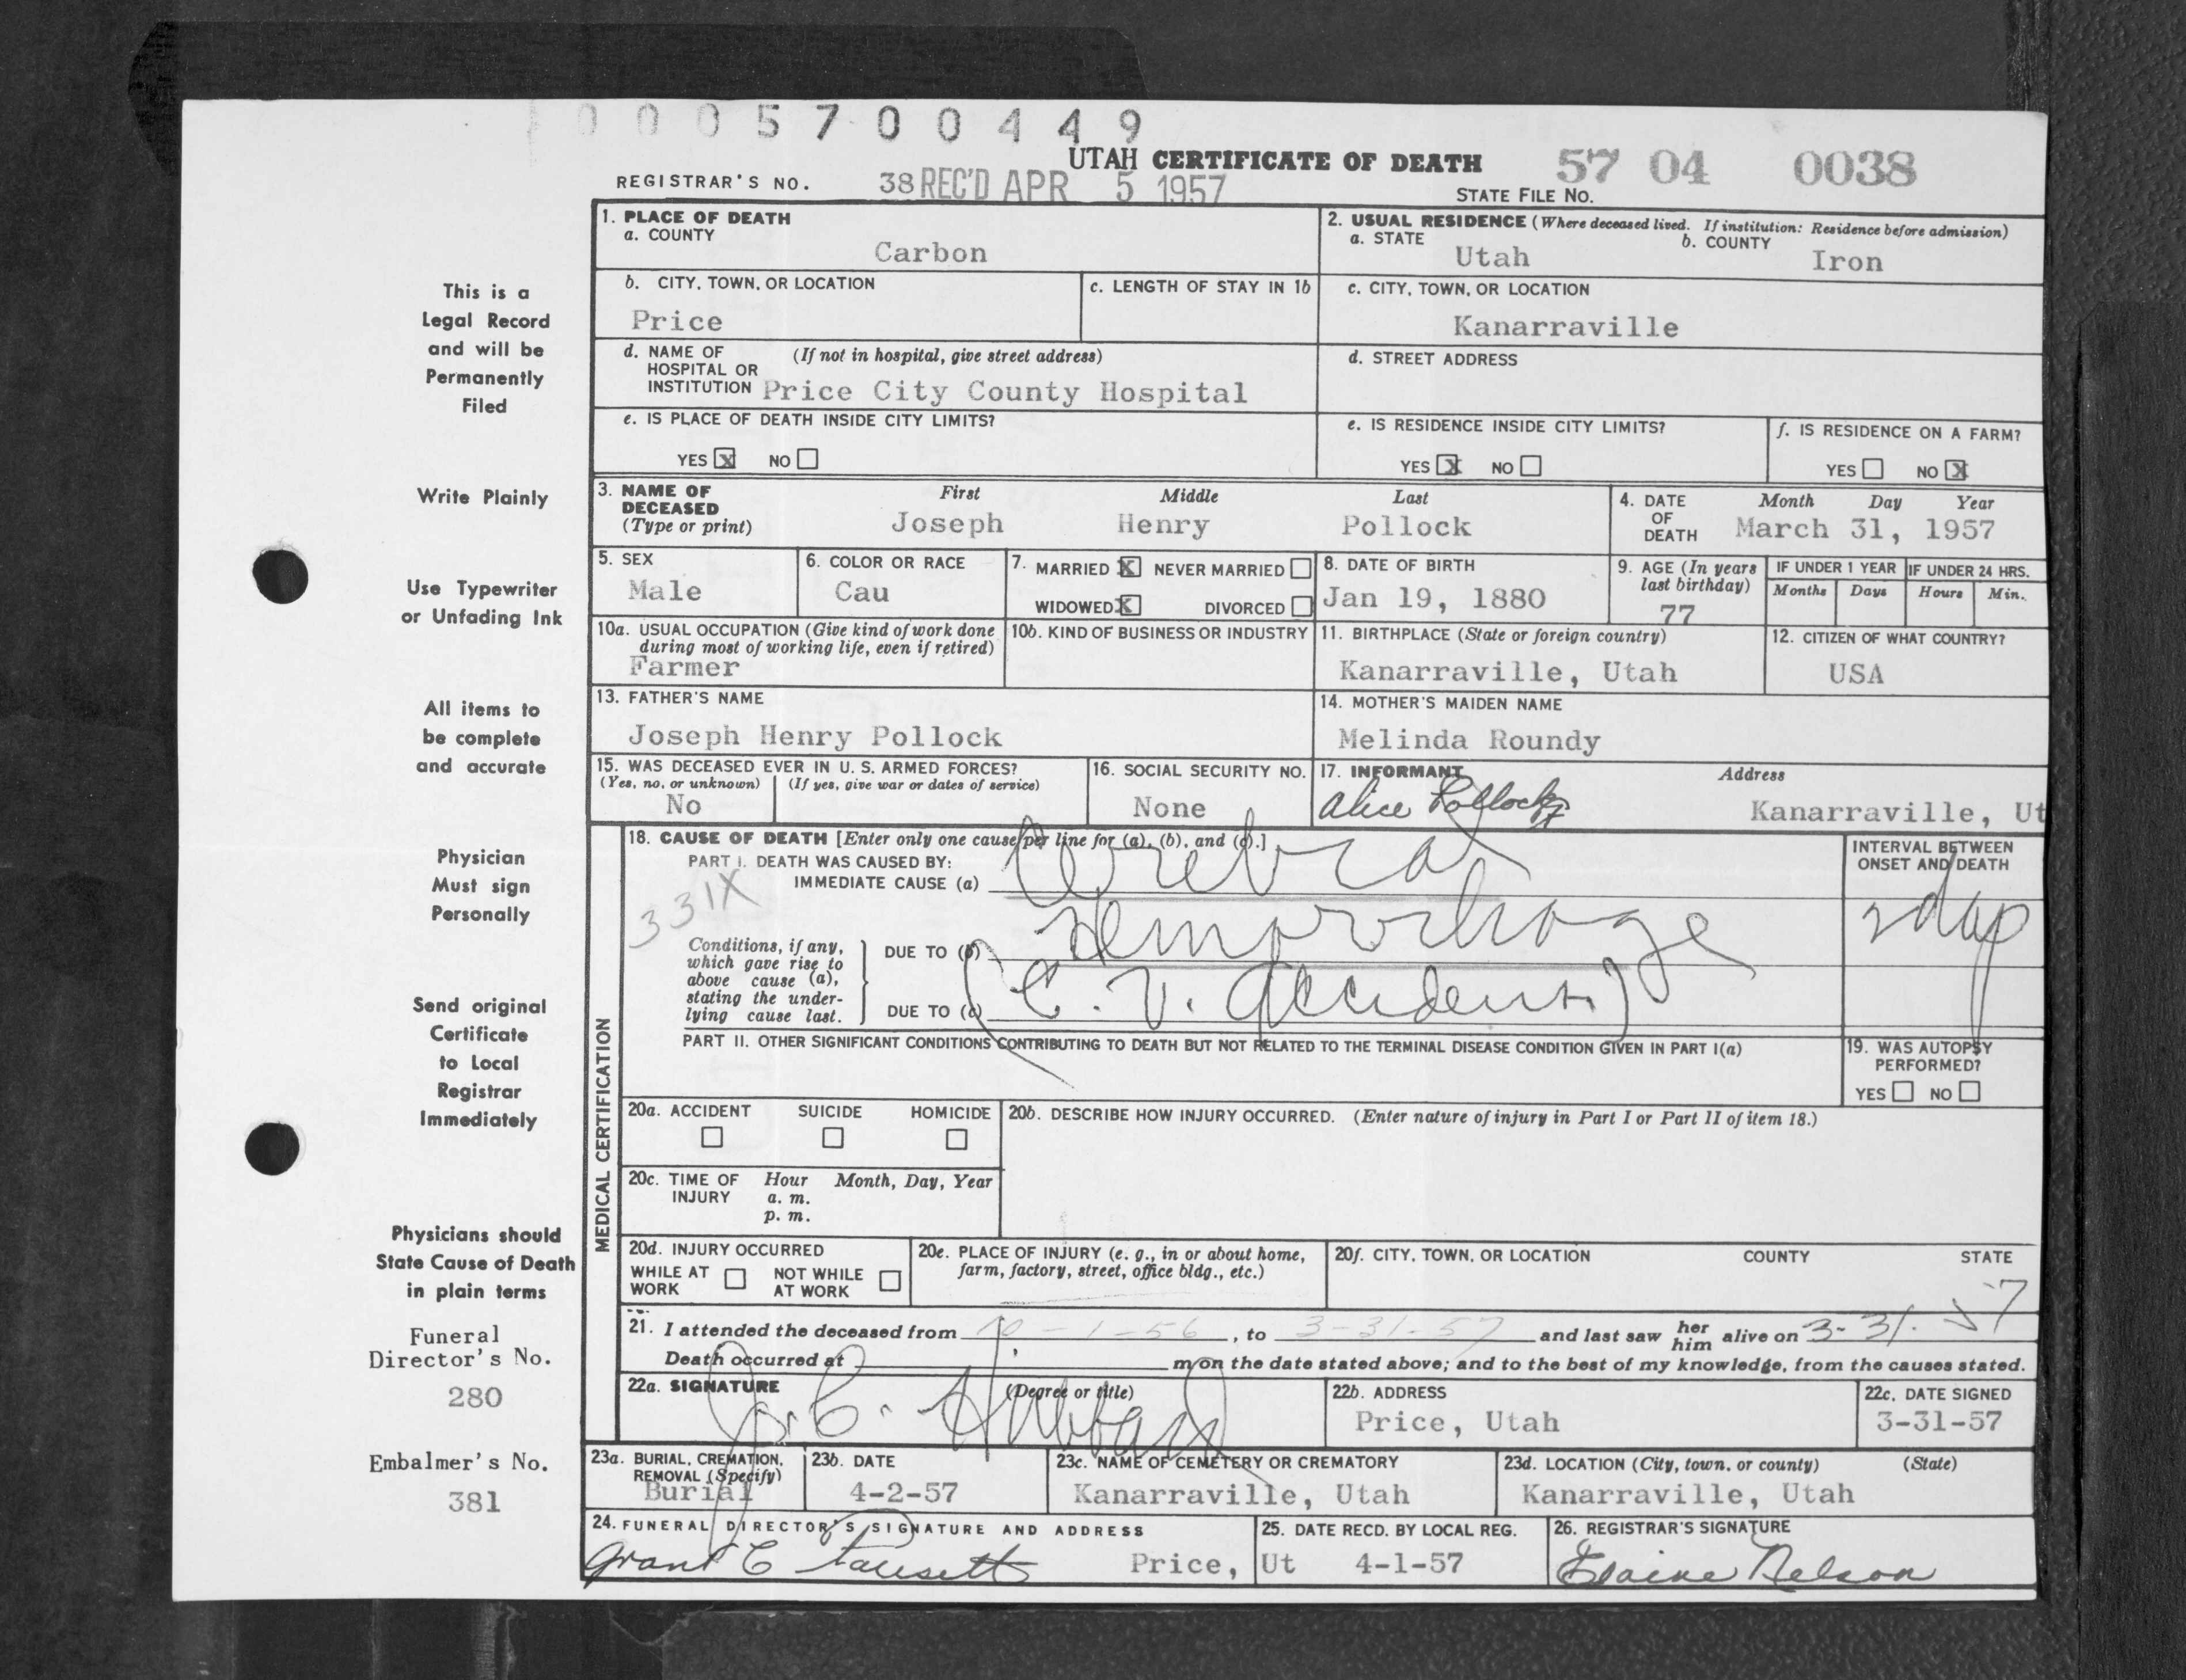 0005700449
UTAH CERTIFICATE OF DEATH 57 04 0038
REGISTRAR'S NO. 38 REC'D APR 5 1957 STATE FILE NO.
1. PLACE OF DEATH
a. COUNTY
Carbon
2. USUAL RESIDENCE (Where deceased lived. If institution: Residence before admission)
a. STATE b. COUNTY
Utah Iron
b. CITY, TOWN, OR LOCATION
Price
c. LENGTH OF STAY IN 1b
c. CITY, TOWN, OR LOCATION
Kanarraville
d. NAME OF (If not in hospital, give street address)
HOSPITAL OR
INSTITUTION Price City County Hospital
d. STREET ADDRESS
e. IS PLACE OF DEATH INSIDE CITY LIMITS?
YES X NO
e. IS RESIDENCE INSIDE CITY LIMITS?
YES X NO
f. IS RESIDENCE ON A FARM?
YES NO X
3. NAME OF First Middle Last
DECEASED
(Type or print) Joseph Henry Pollock
4. DATE Month Day Year
OF
DEATH March 31, 1957
5. SEX
Male
6. COLOR OR RACE
Cau
7. MARRIED X NEVER MARRIED
WIDOWED X DIVORCED
8. DATE OF BIRTH
Jan 19, 1880
9. AGE (In years
last birthday)
77
IF UNDER 1 YEAR IF UNDER 24 HRS.
Months Days Hours Min.
10a. USUAL OCCUPATION (Give kind of work done
during most of working life, even if retired)
Farmer
10b. KIND OF BUSINESS OR INDUSTRY
11. BIRTHPLACE (State or foreign country)
Kanarraville, Utah
12. CITIZEN OF WHAT COUNTRY?
USA
13. FATHER'S NAME
Joseph Henry Pollock
14. MOTHER'S MAIDEN NAME
Melinda Roundy
15. WAS DECEASED EVER IN U. S. ARMED FORCES?
(Yes, no, or unknown) (If yes, give war or dates of service)
No
16. SOCIAL SECURITY NO.
None
17. INFORMANT Address
Alice Pollock Kanarraville, Ut
MEDICAL CERTIFICATION
18. CAUSE OF DEATH [Enter only one cause per line for (a), (b), and (c).]
PART I. DEATH WAS CAUSED BY:
IMMEDIATE CAUSE (a) Cerebral
331X
Conditions, if any,
which gave rise to
above cause (a),
stating the under-
lying cause last.
DUE TO (b) Hemorrhage
DUE TO (c) (C. V. Accident)
INTERVAL BETWEEN
ONSET AND DEATH
PART II. OTHER SIGNIFICANT CONDITIONS CONTRIBUTING TO DEATH BUT NOT RELATED TO THE TERMINAL DISEASE CONDITION GIVEN IN PART I(a)
19. WAS AUTOPSY
PERFORMED?
YES NO
20a. ACCIDENT SUICIDE HOMICIDE
20b. DESCRIBE HOW INJURY OCCURRED. (Enter nature of injury in Part I or Part II of item 18.)
20c. TIME OF Hour Month, Day, Year
INJURY a. m.
p. m.
20d. INJURY OCCURRED
WHILE AT NOT WHILE
WORK AT WORK
20e. PLACE OF INJURY (e. g., in or about home,
farm, factory, street, office bldg., etc.)
20f. CITY, TOWN, OR LOCATION COUNTY STATE
21. I attended the deceased from 10-1-56, to 3-31-57 and last saw her him alive on 3-31-57
Death occurred at m on the date stated above; and to the best of my knowledge, from the causes stated.
22a. SIGNATURE (Degree or title)
J. C. Hubbard
22b. ADDRESS
Price, Utah
22c. DATE SIGNED
3-31-57
23a. BURIAL, CREMATION,
REMOVAL (Specify)
Burial
23b. DATE
4-2-57
23c. NAME OF CEMETERY OR CREMATORY
Kanarraville, Utah
23d. LOCATION (City, town, or county) (State)
Kanarraville, Utah
24. FUNERAL DIRECTOR'S SIGNATURE AND ADDRESS
Grant C Fausett Price, Ut
25. DATE RECD. BY LOCAL REG.
4-1-57
26. REGISTRAR'S SIGNATURE
Elaine Nelson
This is a
Legal Record
and will be
Permanently
Filed
Write Plainly
Use Typewriter
or Unfading Ink
All items to
be complete
and accurate
Physician
Must sign
Personally
Send original
Certificate
to Local
Registrar
Immediately
Physicians should
State Cause of Death
in plain terms
Funeral
Director's No.
280
Embalmer's No.
381